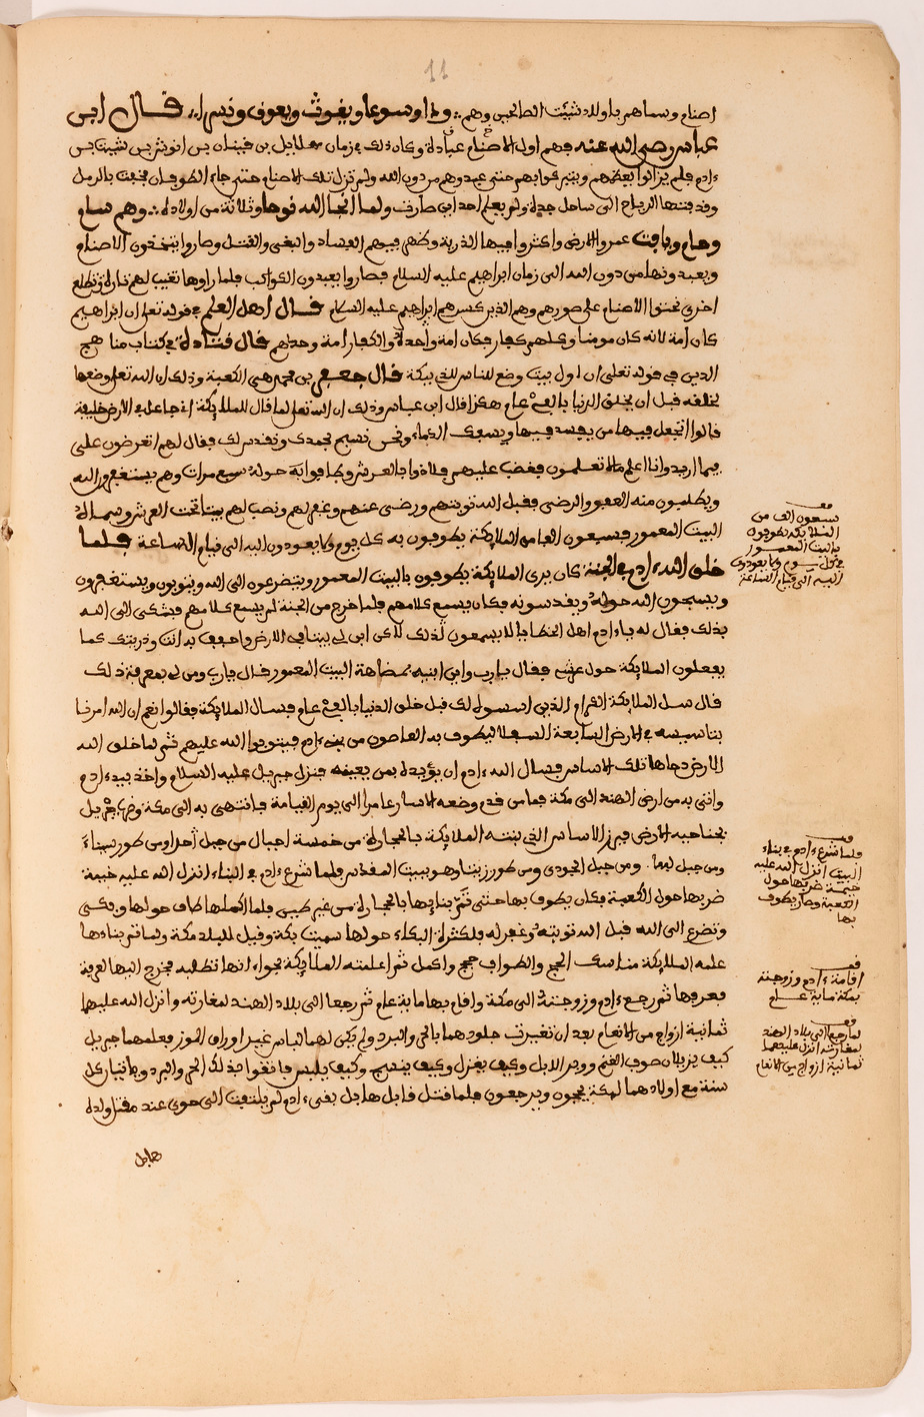 11
اصنام وسماهم باولاد شيث الصالحين وهم ودا وسوعا ويغوث ويعوق ونسرا قال ابن
عباس رضي الله عنه فهم اول الاصنام عبادة وكان ذلك في زمان مهلاييل بن قينان بن انوش بن شيث بن
ءادم فلم يزالوا بعظمهم وبتبركوا بهم حتى عبدوهم من دون الله ولم تزل تلك الاصنام حتى جاء الطوفان فخبت بالرمل
وقذفتها الرياح الى ساحل جدة ولم يعلم احد اين صارت ولما انجا الله نوحا وثلاثة من اولاده وهم سام
وحام ويافث عمروا الارض واكثروا فيها الذرية وظهر فيهم الفساد والبغي والقتل وصاروا يتخذون الاصنام
ويعبدونها من دون الله الى زمان ابراهيم عليه السلام فصاروا يعبدون الكواكب فلما راوها تغيب لهم تارة وتطلع
اخرى نحتوا الاصنام على صورهم وهم الذين كسرهم ابراهيم عليه السلام قال اهل العلم في قوله تعلى ان ابراهيم
كان امة لانه كان مومنا وكلهم كفار فكان امة واحدة والكفار امة وحدهم قال قتادة في كتاب مناهج
الدين في قوله تعلى ان اول بيت وضع للناس للذي ببكة قال جعفر بن محمد هي الكعبة وذلك ان الله تعلى وضعها
لخلقه قبل ان يخلق الدنيا بالفي عام هكذا قال ابن عباس وذلك ان الله تعلى لما قال للملايكة اني جاعل في الارض خليفة
قالوا اتجعل فيها من يفسد فيها ويسفك الدماء ونحن نسبح بحمدك ونقدس لك فقال لهم اتعرضون علي
فيما اريد وانا اعلم ما لا تعلمون فغضب عليهم فلاذوا بالعرش وطافوا به حوله سبع مرات وهم يستغفرون الله
ويطلبون منه العفو والرضى فقبل الله توبتهم ورضى عنهم وغفر لهم ونصب لهم بيتا تحت العرش وسماه
البيت المعمور فسبعون الفا من الملايكة يطوفون به كل يوم ولا يعودون اليه الى قيام الساعة فلما
خلق الله ءادم في الجنة كان يرى الملايكة يطوفون بالبيت المعمور ويتضرعون الى الله ويتوبون ويستغفرون
ويسبحون الله حوله ويقدسونه فكان يسمع كلامهم فلما خرج من الجنة لم يسمع كلامهم فشكى الى الله
بذلك فقال له يا ءادم اهل الخطايا لا يسمعون لذلك لاكن ابن لي بيتا في الارض واحفف به انت وذريتك كما
يفعلون الملايكة حول عرشي فقال يارب واين ابنيه بمضاهة البيت المعمور قال يارب ومن لي بمعرفة ذلك
قال سل الملايكة الكرام الذين اسسوه لك قبل خلق الدنيا بالفي عام فسال الملايكة فقالوا نعم ان الله امرنا
بتاسيسه في الارض السابعة السفلا ليطوف به العاصون من بني ءادم فيتوبوا الله عليهم ثم لما خلق الله
الارض دحاها تلك الاساس فسال الله ءادم ان يؤيده بمن يعينه فنزل جبريل عليه السلام واخذ بيد ءادم
واتى به من ارض الهند الى مكة فما من قدم وضعه الا صار عامرا الى يوم القيامة فانتهى به الى مكة وضرب جبريل
بجناحيه الارض فبرز الاساس التي بنته الملايكة بالحجارة من خمسة اجبال من جبل أحد ومن طور سيناء
ومن جبل لبنا ومن جبل الجودي ومن طور زيتا وهو ببيت المقدس فلما شرع ءادم في البناء انزل الله عليه خيمة
ضربها حول الكعبة فكان يطوف بها حتى تم بنايها بالحجارة من غير طين فلما اكملها طاف حولها وبكى
وتضرع الى الله قبل الله توبته وغفر له فلكثرة البكاء حولها سميت بكة وقيل للبلد مكة ولما تم بناءها
علمه الملايكة مناسك الحج والطواف فحج واكمل ثم اعلمته الملايكة بحواء انها تطلبه فخرج اليها لعرفة
فعرفها ثم رجع ءادم وزوجته الى مكة واقام بها ماية عام ثم رجعا الى بلاد الهند لمغارته وانزل الله عليهما
ثمانية ازواج من الانعام بعد ان تغيرت جلودهما بالحر والبرد ولم يكن لهما لباس غير اوراق الموز فعلمهما جبريل
كيف يزيلان صوف الغنم ووبر الابل وكيف يغزل وكيف ينسج وكيف يلبس فاتقوا بذلك الحر والبرد وياتيان كل
سنة مع اولادهما لمكة يحجون ويرجعون فلما قتل قابل هابل بقى ءادم لم يلتفت الى حوى عند مقتل ولده
هابل
قف
سبعون الف من
الملايكة يطوفون
بالبيت المعمور
في كل يوم ولا يعودون
اليه الى قيام الساعة
قف
فلما شرع ءادم في بناء
البيت انزل الله عليه
خيمة ضربها حول
الكعبة وصار يطوف
بها
قف
اقامة ءادم وزوجته
بمكة ماية عام
قف
لما رجعا الى بلاد الهند
لمغارته انزل عليهما
ثمانية ازواج من الانعام